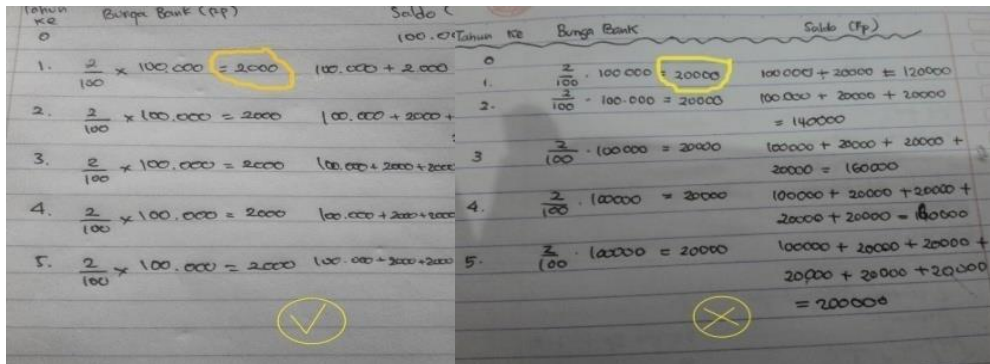 Tahun Ke Bunga Bank (Rp) Saldo (
0 100.0
1. 2/100 × 100.000 = 2000 100.000 + 2.000
2. 2/100 × 100.000 = 2000 100.000 + 2000 +
3. 2/100 × 100.000 = 2000 100.000 + 2000 + 2000
4. 2/100 × 100.000 = 2000 100.000 + 2000 + 2000
5. 2/100 × 100.000 = 2000 100.000 + 2000 + 2000
Tahun Ke Bunga Bank Saldo (Rp)
0
1. 2/100 . 100 000 = 20000 100000 + 20000 = 120000
2. 2/100 . 100.000 = 20000 100.000 + 20000 + 20000
= 140000
3 2/100 . 100000 = 20000 100000 + 20000 + 20000 +
20000 = 160000
4. 2/100 . 100000 = 20000 100000 + 20000 + 20000 +
20000 + 20000 = 180000
5. 2/100 . 100000 = 20000 100000 + 20000 + 20000 +
20000 + 20000 + 20000
= 200000